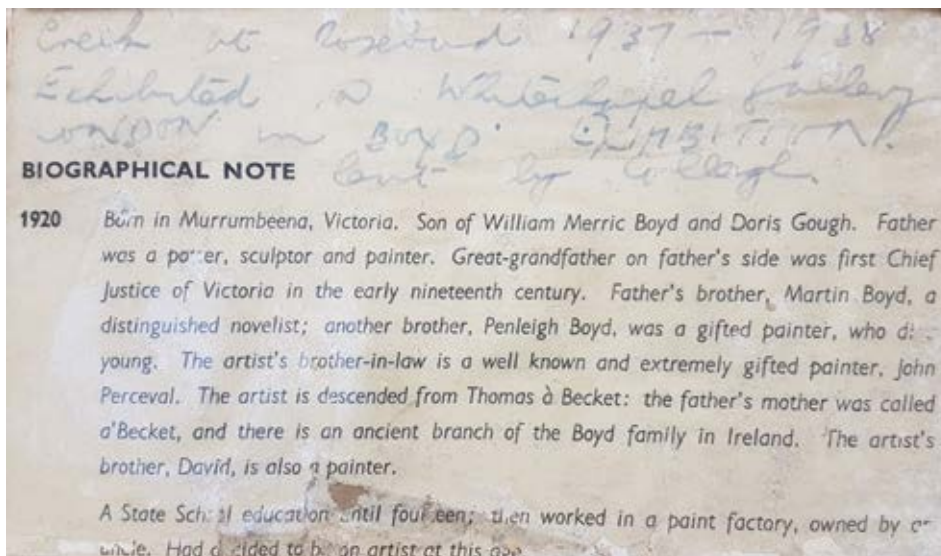 Creek at Rosebud 1937 - 1938
Exhibited Whitechapel Gallery
LONDON in BOYD EXHIBITION.
BIOGRAPHICAL NOTE
by
1920 Born in Murrumbeena, Victoria. Son of William Merric Boyd and Doris Gough. Father
was a potter, sculptor and painter. Great-grandfather on father's side was first Chief
Justice of Victoria in the early nineteenth century. Father's brother, Martin Boyd, a
distinguished novelist; another brother, Penleigh Boyd, was a gifted painter, who
young. The artist's brother-in-law is a well known and extremely gifted painter, John
Perceval. The artist is descended from Thomas à Becket: the father's mother was called
a'Becket, and there is an ancient branch of the Boyd family in Ireland. The artist's
brother, David, is also a painter.
A State School education until fourteen; then worked in a paint factory, owned by
uncle. Had decided to be an artist at this age